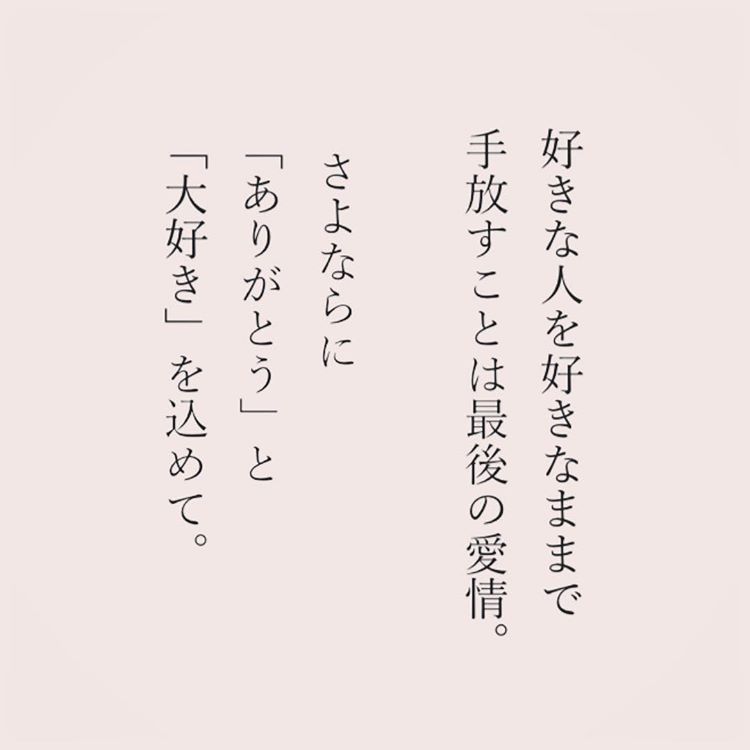 好きな人を好きなままで
手放すことは最後の愛情。
さよならに
「ありがとう」と
「大好き」を込めて。